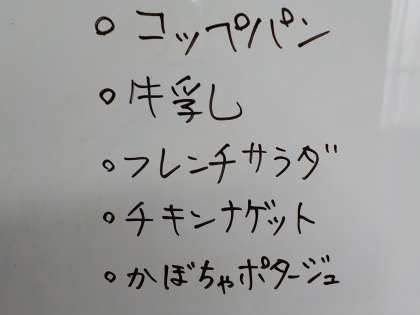 ○ コッペパン
○ 牛乳
○ フレンチサラダ
○ チキンナゲット
○ かぼちゃポタージュ